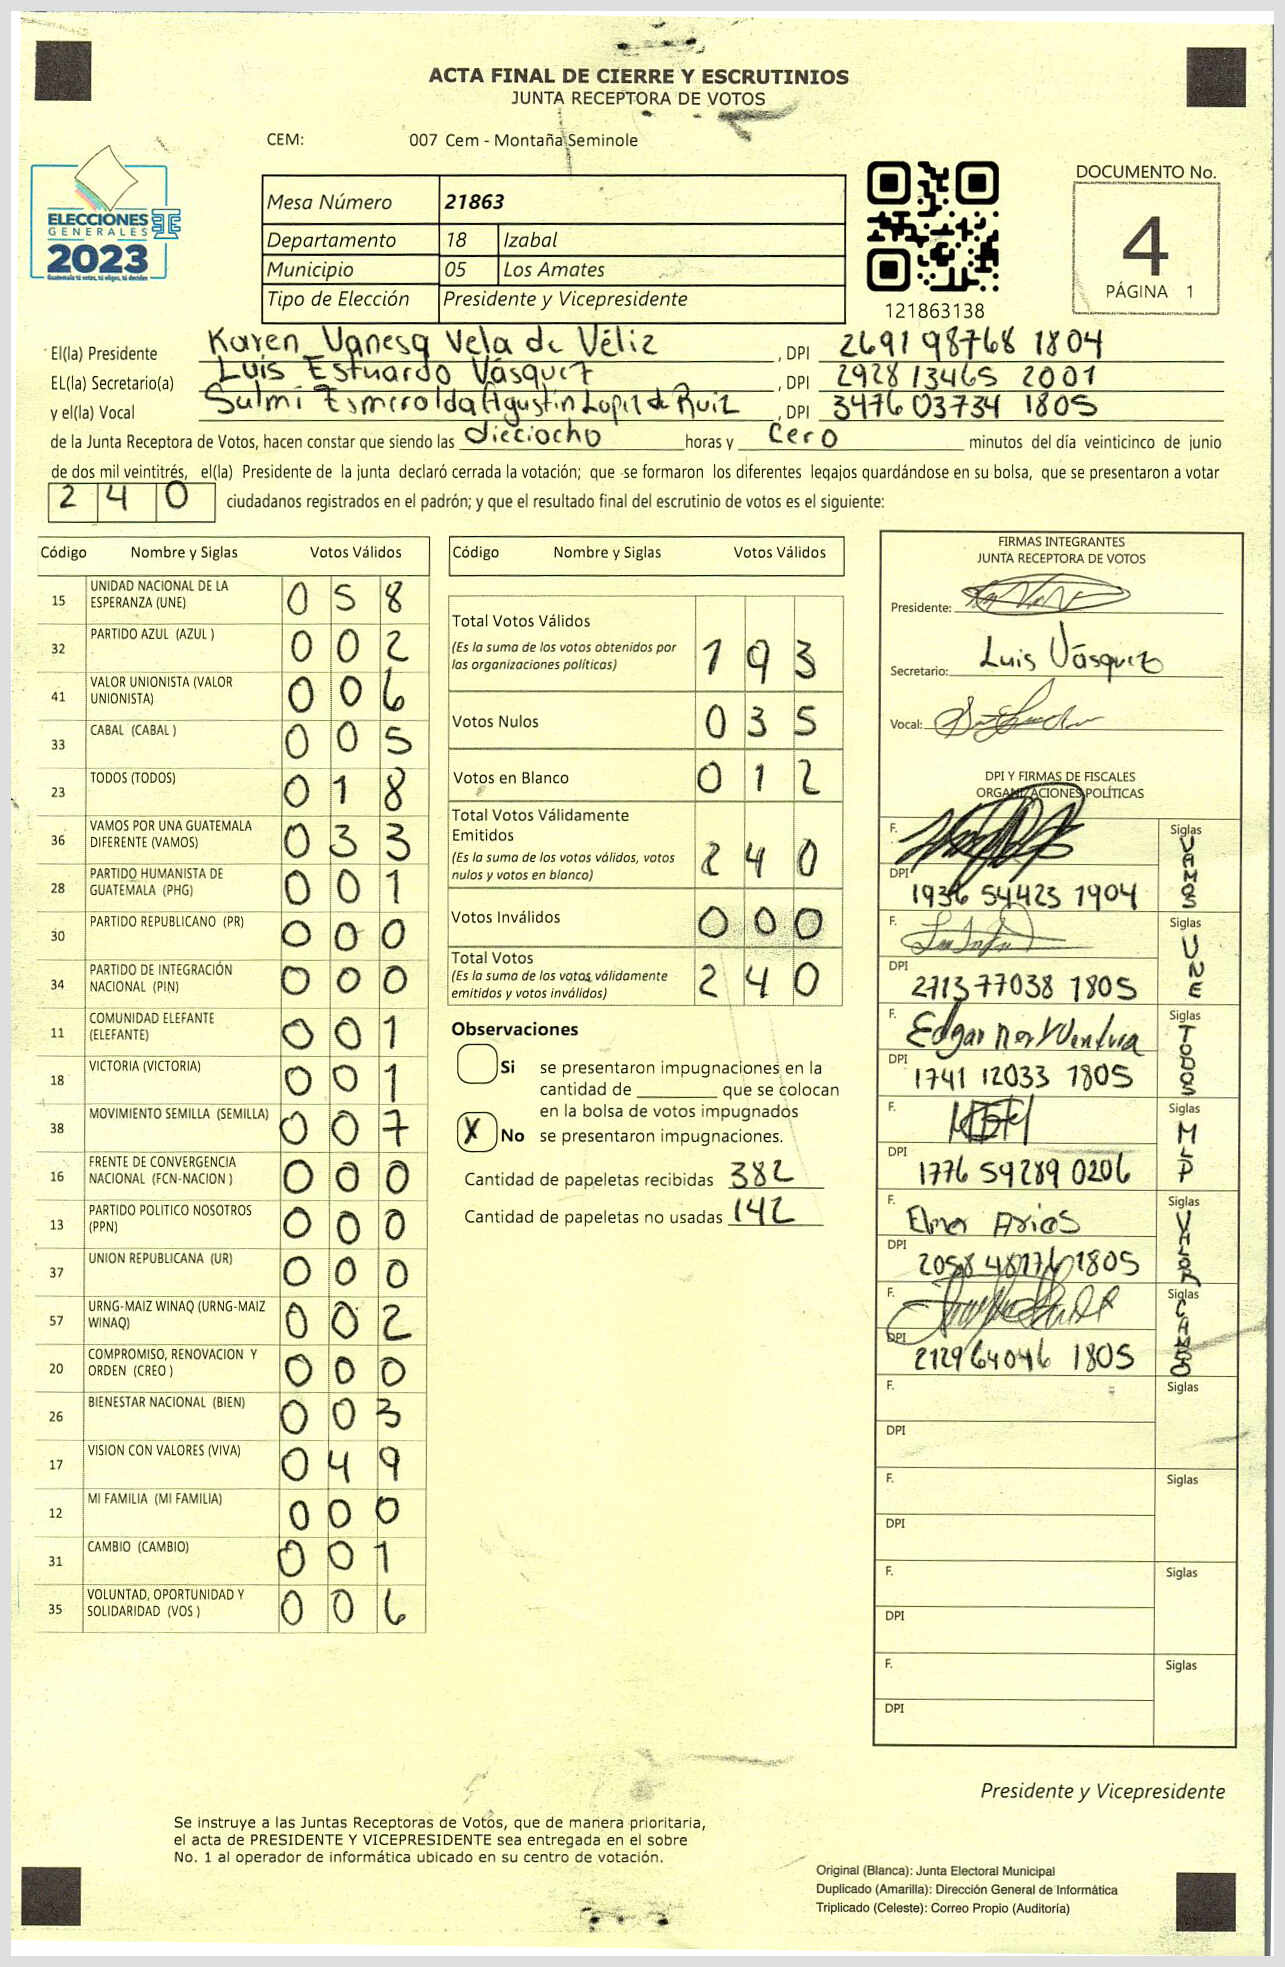 ACTA FINAL DE CIERRE Y ESCRUTINIOS
JUNTA RECEPTORA DE VOTOS
CEM: 007 Cem - Montaña Seminole
ELECCIONES
GENERALES
2023
Guatemala tú votas, tú eliges, tú decides
Mesa Número 21863
Departamento 18 Izabal
Municipio 05 Los Amates
Tipo de Elección Presidente y Vicepresidente
121863138
DOCUMENTO No.
4
PÁGINA 1
El(la) Presidente Karen Vanesa Vela de Véliz, DPI 2691 98768 1804
EL(la) Secretario(a) Luis Estuardo Vásquez, DPI 2928 13465 2001
y el(la) Vocal Sulmi Esmeralda Agustin Lopez de Ruiz, DPI 3476 03734 1805
de la Junta Receptora de Votos, hacen constar que siendo las dieciocho horas y Cero minutos del día veinticinco de junio
de dos mil veintitrés, el(la) Presidente de la junta declaró cerrada la votación; que se formaron los diferentes legajos quardándose en su bolsa, que se presentaron a votar
240 ciudadanos registrados en el padrón; y que el resultado final del escrutinio de votos es el siguiente:
Código Nombre y Siglas Votos Válidos
15 UNIDAD NACIONAL DE LA ESPERANZA (UNE) 058
32 PARTIDO AZUL (AZUL ) 002
41 VALOR UNIONISTA (VALOR UNIONISTA) 006
33 CABAL (CABAL ) 005
23 TODOS (TODOS) 018
36 VAMOS POR UNA GUATEMALA DIFERENTE (VAMOS) 033
28 PARTIDO HUMANISTA DE GUATEMALA (PHG) 001
30 PARTIDO REPUBLICANO (PR) 000
34 PARTIDO DE INTEGRACIÓN NACIONAL (PIN) 000
11 COMUNIDAD ELEFANTE (ELEFANTE) 001
18 VICTORIA (VICTORIA) 001
38 MOVIMIENTO SEMILLA (SEMILLA) 007
16 FRENTE DE CONVERGENCIA NACIONAL (FCN-NACION ) 000
13 PARTIDO POLITICO NOSOTROS (PPN) 000
37 UNION REPUBLICANA (UR) 000
57 URNG-MAIZ WINAQ (URNG-MAIZ WINAQ) 002
20 COMPROMISO, RENOVACION Y ORDEN (CREO ) 000
26 BIENESTAR NACIONAL (BIEN) 003
17 VISION CON VALORES (VIVA) 049
12 MI FAMILIA (MI FAMILIA) 000
31 CAMBIO (CAMBIO) 001
35 VOLUNTAD, OPORTUNIDAD Y SOLIDARIDAD (VOS ) 006
Código Nombre y Siglas Votos Válidos
Total Votos Válidos 193
(Es la suma de los votos obtenidos por
las organizaciones políticas)
Votos Nulos 035
Votos en Blanco 012
Total Votos Válidamente
Emitidos 240
(Es la suma de los votos válidos, votos
nulos y votos en blanco)
Votos Inválidos 000
Total Votos 240
(Es la suma de los votos válidamente
emitidos y votos inválidos)
Observaciones
Si se presentaron impugnaciones en la
cantidad de ________ que se colocan
en la bolsa de votos impugnados
X No se presentaron impugnaciones.
Cantidad de papeletas recibidas 382
Cantidad de papeletas no usadas 142
FIRMAS INTEGRANTES
JUNTA RECEPTORA DE VOTOS
Presidente:
Secretario: Luis Vásquez
Vocal:
DPI Y FIRMAS DE FISCALES
ORGANIZACIONES POLÍTICAS
F. Siglas VAMOS
DPI 1936 54423 1904
F. Siglas UNE
DPI 2713 77038 1805
F. Edgar Ventura Siglas TODOS
DPI 1741 12033 1805
F. Siglas MLP
DPI 1776 59289 0206
F. Elmer Arias Siglas VALOR
DPI 2058 1805
F. Siglas
DPI 2129 64046 1805
F. Siglas
DPI
F. Siglas
DPI
F. Siglas
DPI
F. Siglas
DPI
Presidente y Vicepresidente
Se instruye a las Juntas Receptoras de Votos, que de manera prioritaria,
el acta de PRESIDENTE Y VICEPRESIDENTE sea entregada en el sobre
No. 1 al operador de informática ubicado en su centro de votación.
Original (Blanca): Junta Electoral Municipal
Duplicado (Amarilla): Dirección General de Informática
Triplicado (Celeste): Correo Propio (Auditoría)